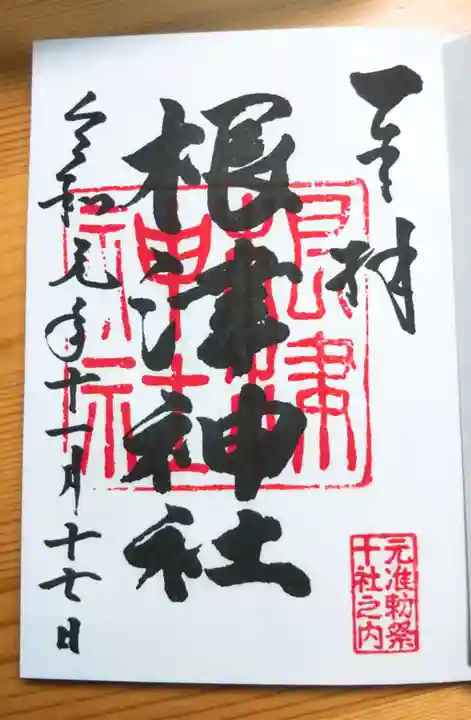 奉拝
根津神社
根津
神社
令和元年十一月十七日
元准勅祭
十社之内